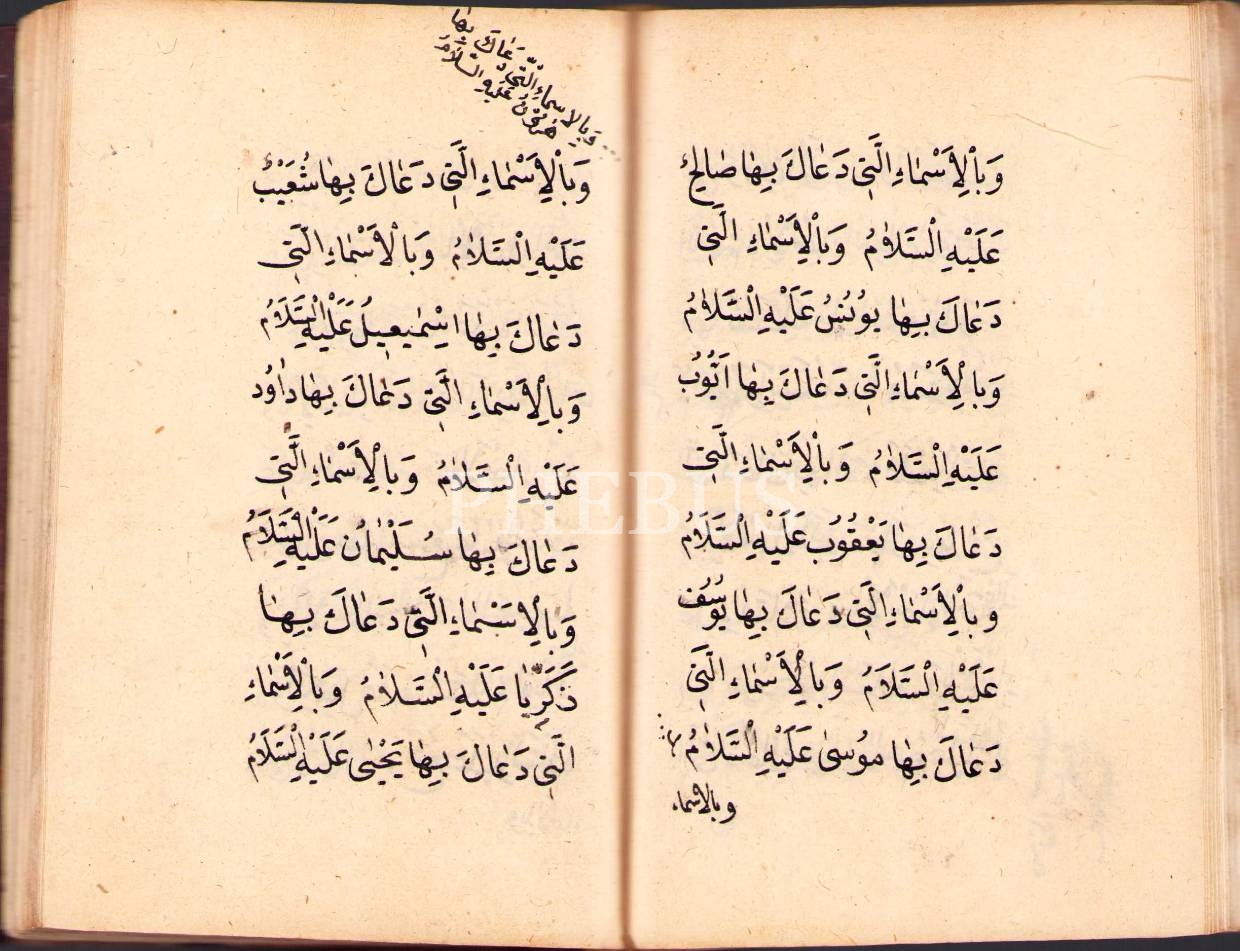 وَبِالْاَسْمَاءِ الَّتِى دَعَاكَ بِهَا صَالِحُ
عَلَيْهِ السَّلَامُ وَبِالْاَسْمَاءِ الَّتِى
دَعَاكَ بِهَا يُونُسُ عَلَيْهِ السَّلَامُ
وَبِالْاَسْمَاءِ الَّتِى دَعَاكَ بِهَا اَيُّوبُ
عَلَيْهِ السَّلَامُ وَبِالْاَسْمَاءِ الَّتِى
دَعَاكَ بِهَا يَعْقُوبُ عَلَيْهِ السَّلَامُ
وبِالْاَسْمَاءِ الَّتِى دَعَاكَ بِهَا يُوسُفُ
عَلَيْهِ السَّلَامُ وَبِالْاَسْمَاءِ الَّتِى
دَعَاكَ بِهَا مُوسٰى عَلَيْهِ السَّلَامُ
وبالاسماء
وَبِالاسماءِ الَّتِى دَعَاكَ بِهَا
عَلَيْهِ السَّلَامُ
وَبِالْاَسْمَاءِ الَّتِى دَعَاكَ بِهَا شُعَيْبُ
عَلَيْهِ السَّلَامُ وَبِالْاَسْمَاءِ الَّتِى
دَعَاكَ بِهَا اِسْمٰعِيلُ عَلَيْهِ السَّلَامُ
وَبِالْاَسْمَاءِ الَّتِى دَعَاكَ بِهَا دَاوُد
عَلَيْهِ السَّلَامُ وَبِالْاَسْمَاءِ الَّتِى
دَعَاكَ بِهَا سُلَيْمٰان عَلَيْهِ السَّلَامُ
وَبِالْاَسْمَاءِ الَّتِى دَعَاكَ بِهَا
زَكَرِيَّا عَلَيْهِ السَّلَامُ وَبِالْاَسْمَاءِ
الَّتِى دَعَاكَ بِهَا يَحْيٰى عَلَيْهِ السَّلَامُ
PHEBUS